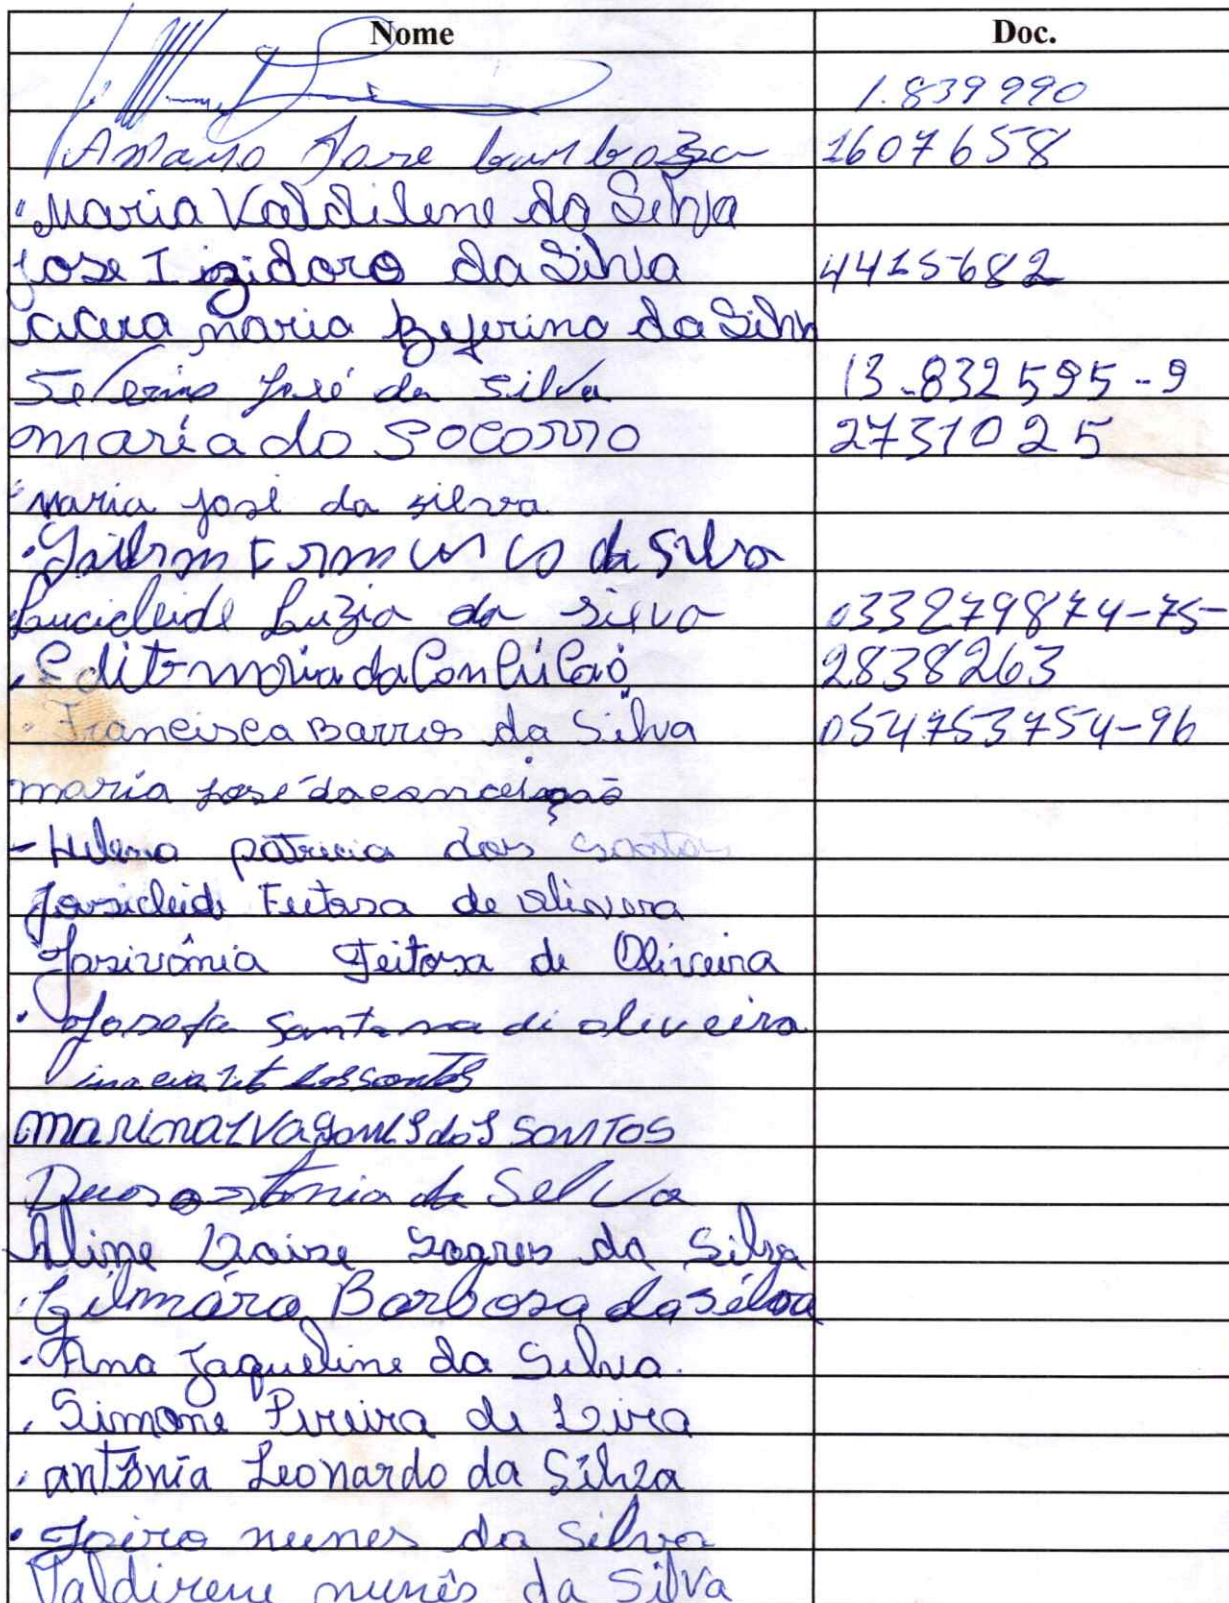 Nome Doc.
1.839990
Amaro Jose barboza 1607658
Maria Valdilene da Silva
Jose Izidoro da Silva 4415682
cicera maria Zeferino da Silva
Severino José da Silva 13-832595-9
maria do Socorro 2731025
maria josé da silva
da Silva
Lucicleide Luzia da Silva 033279874-75-
Edite maria da Conceição 2838263
Francisca Barros da Silva 054753754-96
maria José da conceição
- Helena patricia dos Santos
Josicleide Feitosa de oliveira
Josivânia Feitosa de Oliveira
Josefa Santana di oliveira
dos santos
marinalva gomes dos santos
da Selva
Aline Daise Soares da Silva
Gilmára Barbosa da Silva
Ana Jaqueline da Silva.
Simone Pereira de Lira
antônia Leonardo da Silva
Jairo nunes da Silva
Valdirene nunes da Silva